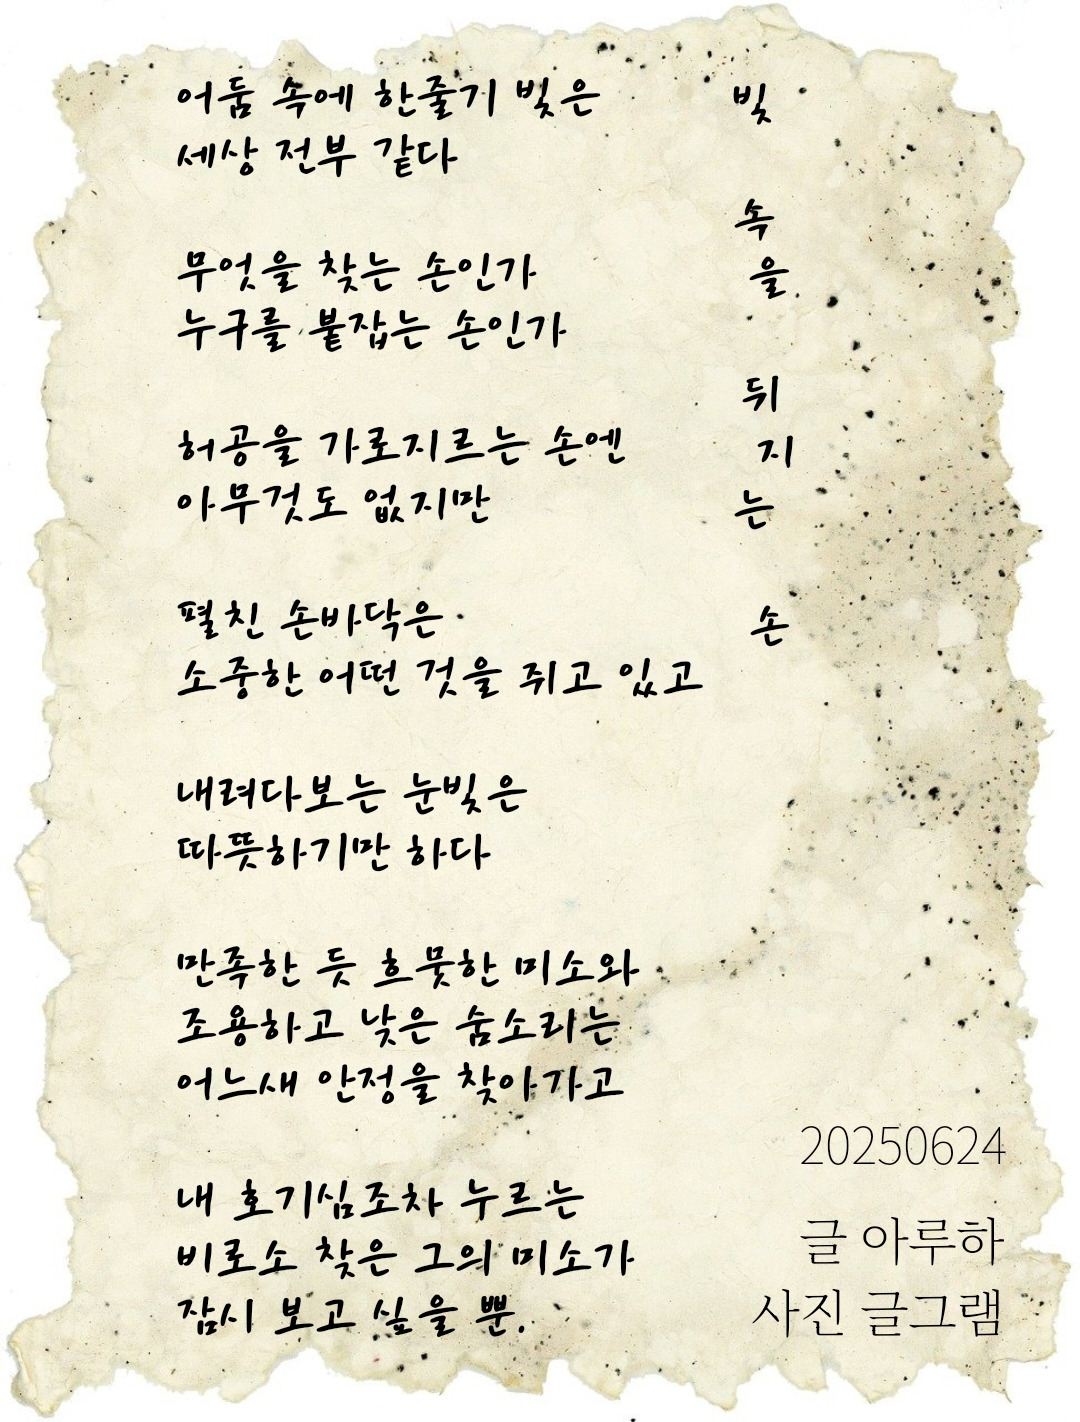 어둠 속에 한줄기 빛은
세상 전부 같다
무엇을 찾는 손인가
누구를 붙잡는 손인가
허공을 가로지르는 손엔
아무것도 없지만
펼친 손바닥은
소중한 어떤 것을 쥐고 있고
내려다보는 눈빛은
따뜻하기만 하다
만족한 듯 흐뭇한 미소와
조용하고 낮은 숨소리는
어느새 안정을 찾아가고
내 호기심조차 누르는
비로소 찾은 그의 미소가
잠시 보고 싶을 뿐.
빛
속
을
뒤
지
는
손
20250624
글 아루하
사진 글그램